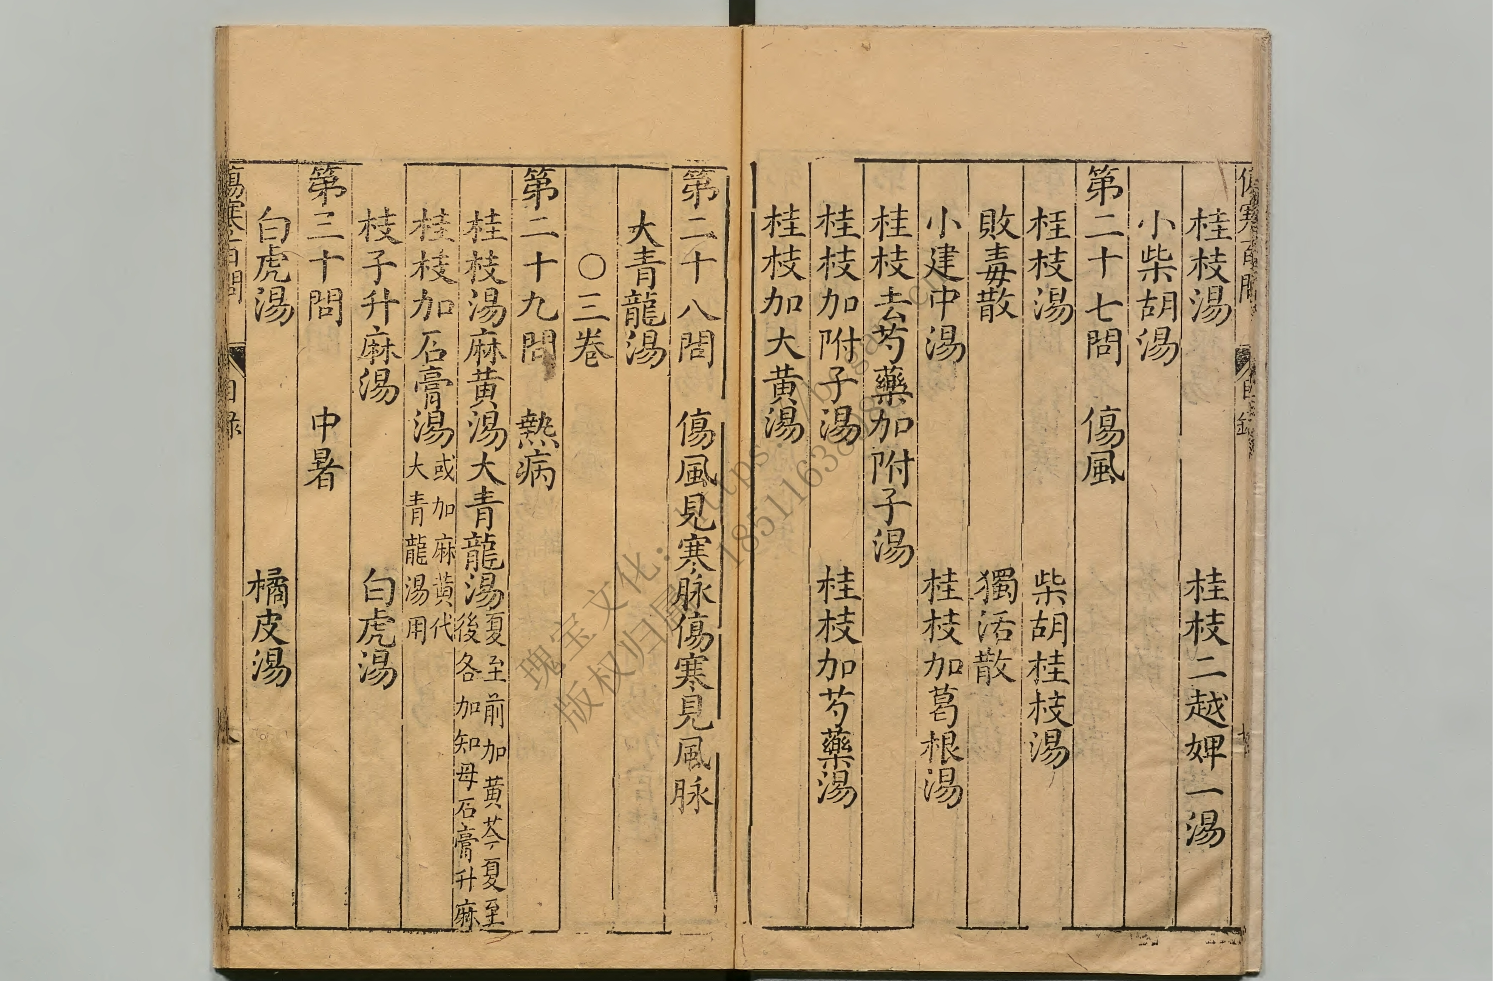 桂枝湯 桂枝二越婢一湯
小柴胡湯
第二十七問 傷風
桂枝湯 柴胡桂枝湯
敗毒散 獨活散
小建中湯 桂枝加葛根湯
桂枝去芍藥加附子湯
桂枝加附子湯 桂枝加芍藥湯
桂枝加大黄湯
第二十八問 傷風見寒脉傷寒見風脉
大青龍湯
○三卷
第二十九問 熱病
桂枝湯麻黄湯大青龍湯夏至前加黄芩夏至
後各加知母石膏升麻
桂枝加石膏湯或加麻黄代
大青龍湯用
枝子升麻湯 白虎湯
第三十問 中暑
白虎湯 橘皮湯
傷寒百問 目録
瑰宝文化：https:
版权归属 185116389